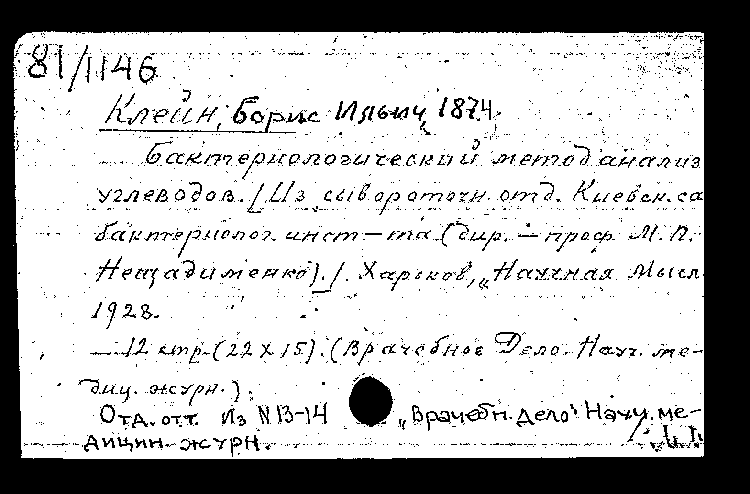 81/1146
Клейн, Борис Ильич, 1874.
Бактериологический метод анализ
углеводов. [Из сывороточн. отд. Киевск. са
бактериолог. инст-та (дир. — проф. М. П.
Нещадименко)]. Харьков, „Научная Мысл
1928.
— 12 стр. (22×15). (Врачебное Дело. Науч. ме-
диц. журн.).
Отд. отт. Из N 13-14 „Врачебн. дело" Научн. ме-
дицин. журн.